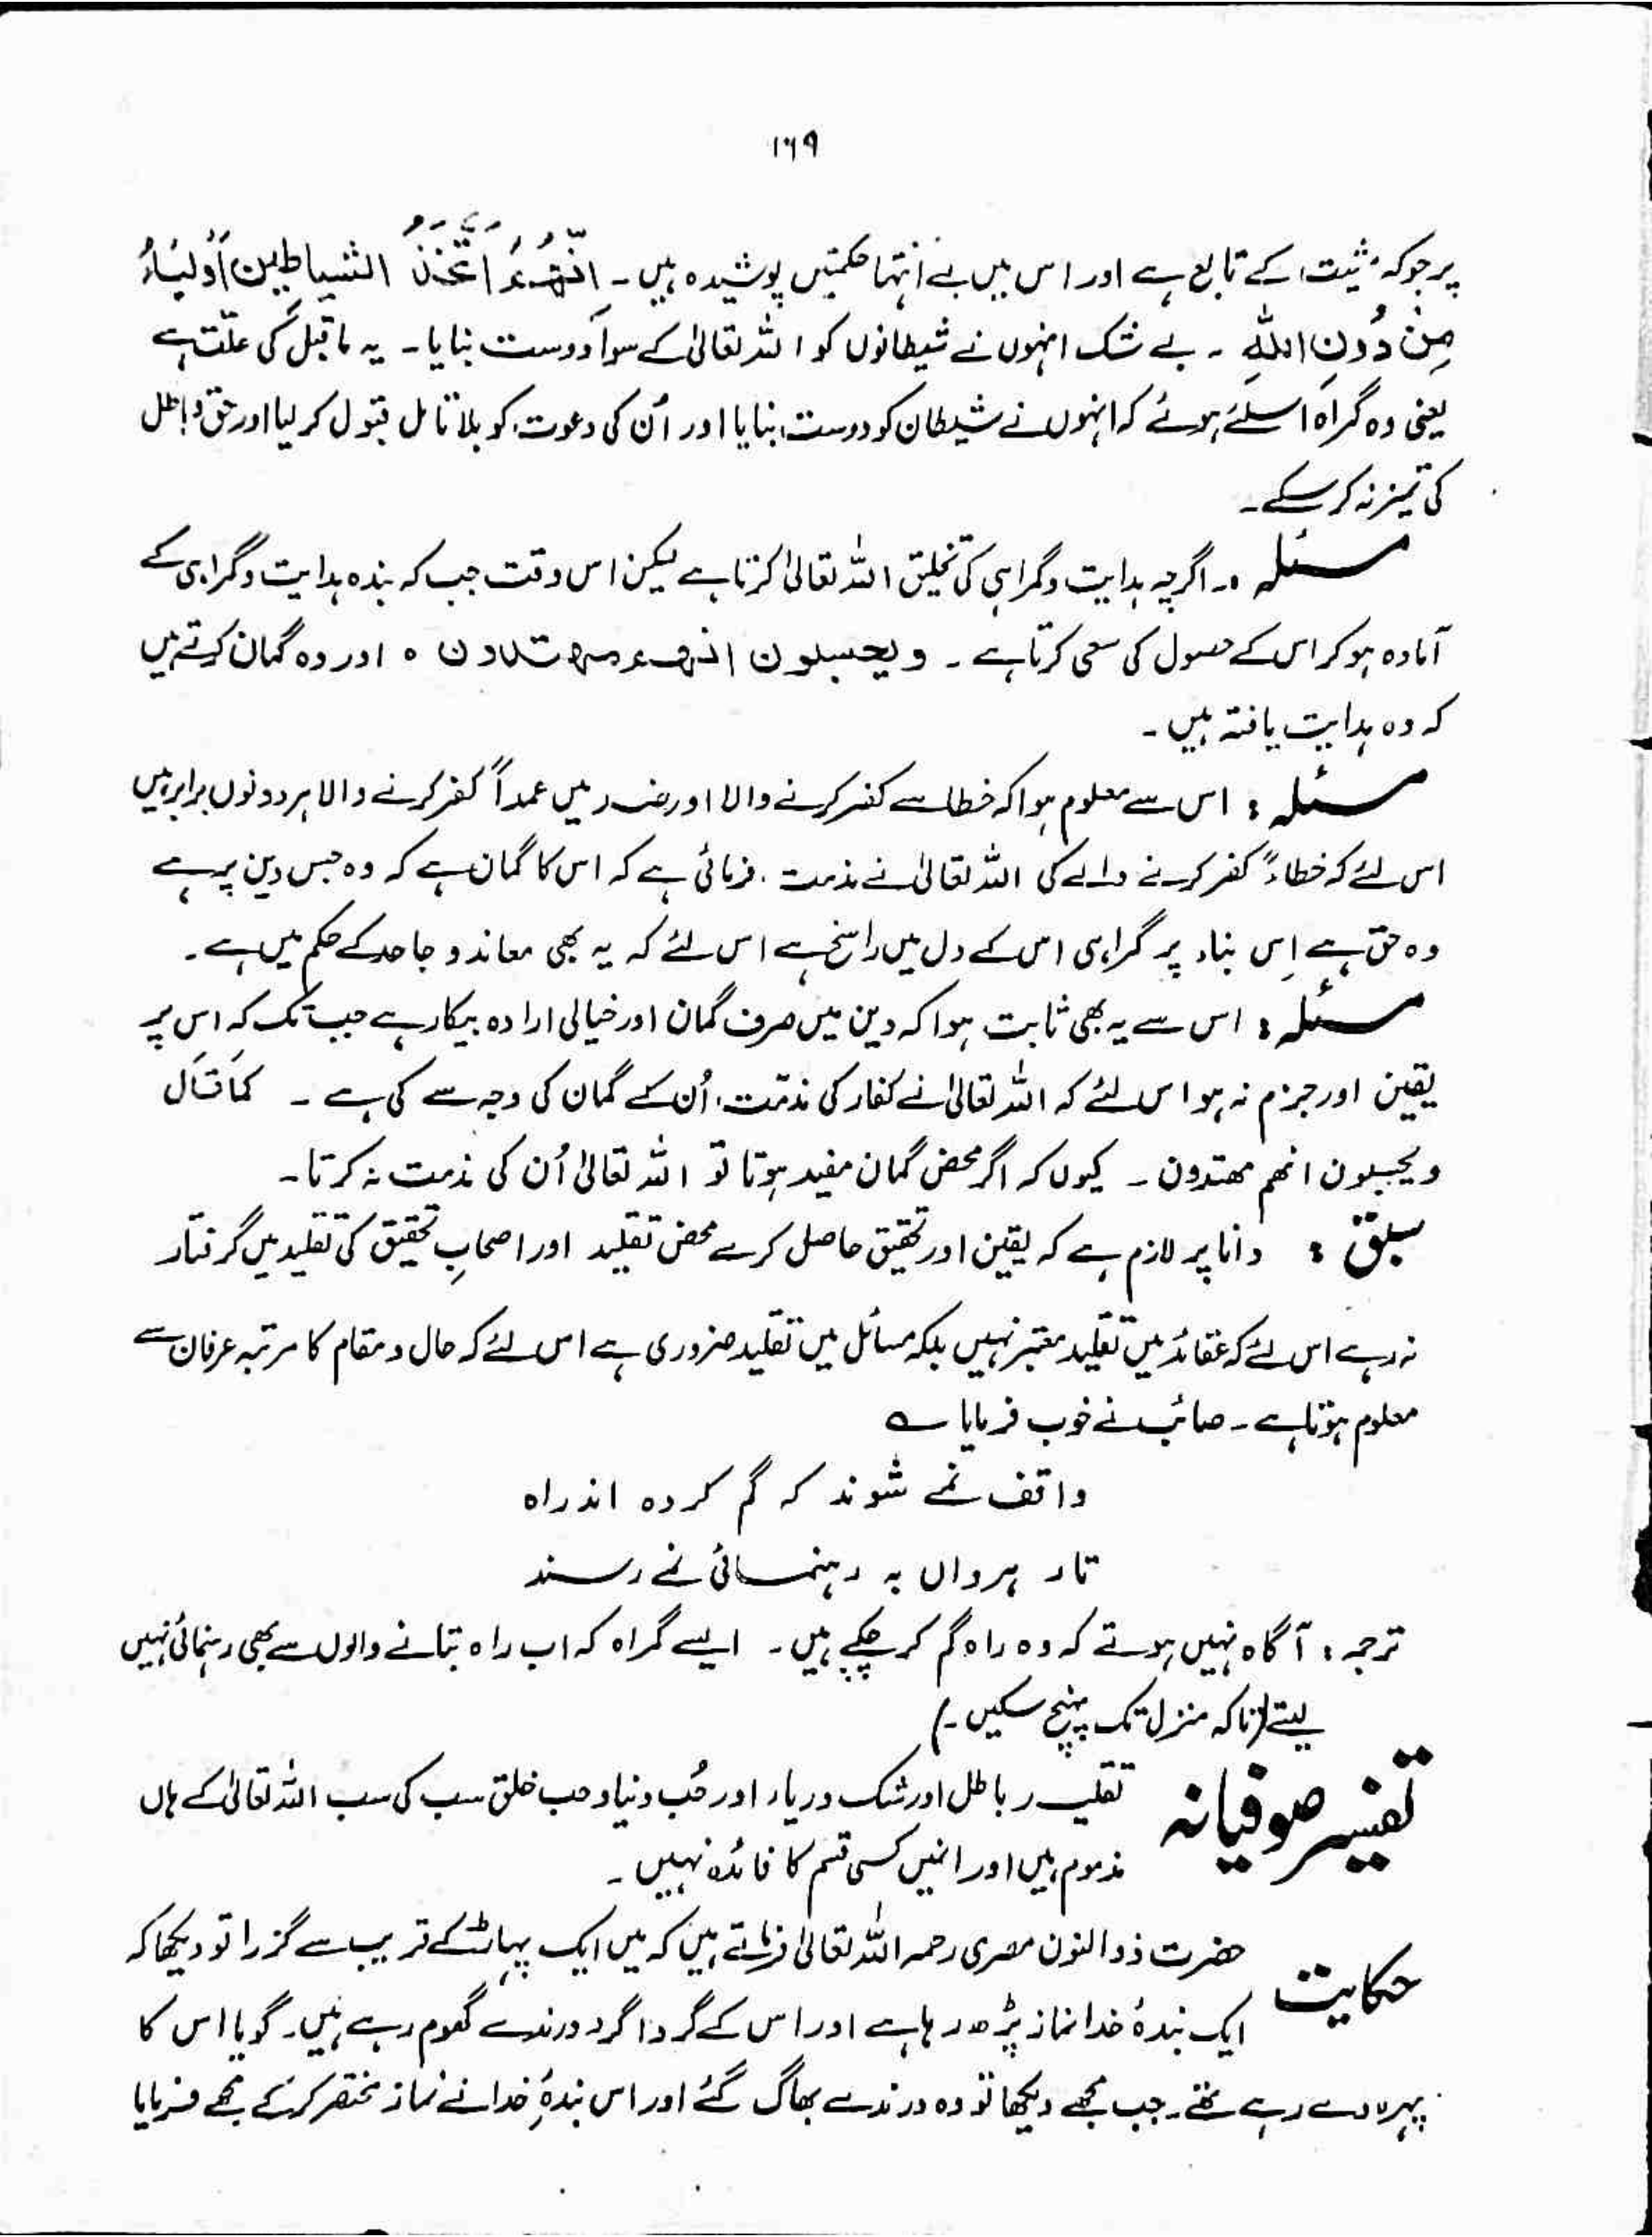 ۱۶۹
پر جو کہ مشیت کے تابع ہے اور اس میں بے انتہا حکمتیں پوشیدہ ہیں۔ اِنَّهُمُ اتَّخَذُ الشیاطین اَوْلِیَاءُ
مِنْ دُونِ اللّٰهِ ۔ بے شک انہوں نے شیطانوں کو اللہ تعالیٰ کے سوا دوست بنایا۔ یہ ماقبل کی علّت ہے
یعنی وہ گمراہ اسلئے ہوئے کہ انہوں نے شیطان کو دوست بنایا اور اُن کی دعوت کو بلا تامل قبول کر لیا اور حق و باطل
کی تمیز نہ کر سکے۔
مسئلہ ۔ اگرچہ ہدایت و گمراہی کی تخلیق اللہ تعالیٰ کرتا ہے لیکن اس وقت جب کہ بندہ ہدایت و گمراہی کے
آمادہ ہو کر اس کے حصول کی سعی کرتا ہے ۔ ویحسبون انهم مهتدون ہ اور وہ گمان کرتے ہیں
کہ وہ ہدایت یافتہ ہیں ۔
مسئلہ : اس سے معلوم ہوا کہ خطا سے کفر کرنے والا اور ضد میں عمداً کفر کرنے والا ہر دونوں برابر ہیں
اس لئے کہ خطاءً کفر کرنے والے کی اللہ تعالیٰ نے مذمت فرمائی ہے کہ اس کا گمان ہے کہ وہ جس دین پر ہے
وہ حق ہے اِس بناء پر گمراہی اس کے دل میں راسخ ہے اس لئے کہ یہ بھی معاند و جاحد کے حکم میں ہے ۔
مسئلہ : اس سے یہ بھی ثابت ہوا کہ دین میں صرف گمان اور خیالی ارادہ بیکار ہے جب تک کہ اس پر
یقین اور جزم نہ ہو اس لئے کہ اللہ تعالیٰ نے کفار کی مذمّت اُن کے گمان کی وجہ سے کی ہے ۔ کَمَا قَال
ویحسبون انھم مھتدون ۔ کیوں کہ اگر محض گمان مفید ہوتا تو اللہ تعالیٰ اُن کی مذمت نہ کرتا ۔
سبق : دانا پر لازم ہے کہ یقین اور تحقیق حاصل کرے محض تقلید اور اصحابِ تحقیق کی تقلید میں گرفتار
نہ رہے اس لئے کہ عقائد میں تقلید معتبر نہیں بلکہ مسائل میں تقلید ضروری ہے اس لئے کہ حال و مقام کا مرتبہ عرفان سے
معلوم ہوتا ہے ۔ صائب نے خوب فرمایا ؎
واقف نمے شوند کہ گم کردہ اند راہ
تا رہرواں بہ رہنمائی نمے رسند
ترجمہ : آگاہ نہیں ہوتے کہ وہ راہ گم کر چکے ہیں ۔ ایسے گمراہ کہ اب راہ بتانے والوں سے بھی رہنمائی نہیں
لیتے (تاکہ منزل تک پہنچ سکیں ۔)
تفسیر صوفیانہ تقلید باطل اور شک و ریاء اور حُب دنیا و حب خلق سب کی سب اللہ تعالیٰ کے ہاں
مذموم ہیں اور انہیں کسی قسم کا فائدہ نہیں ۔
حکایت حضرت ذوالنون مصری رحمہ اللہ تعالیٰ فرماتے ہیں کہ میں ایک پہاڑ کے قریب سے گزرا تو دیکھا کہ
ایک بندۂ خدا نماز پڑھ رہا ہے اور اس کے گردا گرد درندے گھوم رہے ہیں ۔ گویا اس کا
پہرہ دے رہے تھے ۔ جب مجھے دیکھا تو وہ درندے بھاگ گئے اور اس بندۂ خدا نے نماز مختصر کرکے مجھے فرمایا